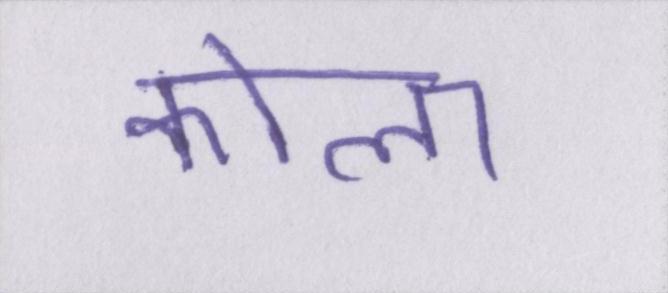 कोला